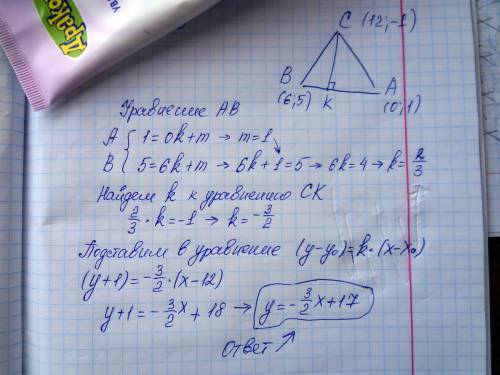 Дракo
C (12;-1)
B
(6;5)
K
A
(0;1)
Уравнение AB
A { 1=0k+m → m=1
B { 5=6k+m → 6k+1=5 → 6k=4 → k=2/3
Найдем k к уравнению CK
2/3 · k=-1 → k=-3/2
Подставим в уравнение (y-y₀)=k·(x-x₀)
(y+1)=-3/2·(x-12)
y+1=-3/2x+18 → y=-3/2x+17
Ответ ↗